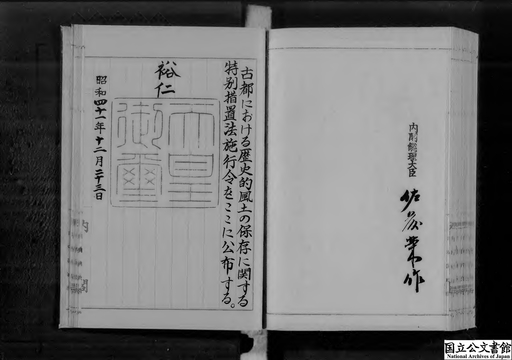 内閣総理大臣
佐藤栄作
古都における歴史的風土の保存に関する
特別措置法施行令をここに公布する。
裕仁
天皇
御璽
昭和四十一年十二月二十三日
国立公文書館
National Archives of Japan